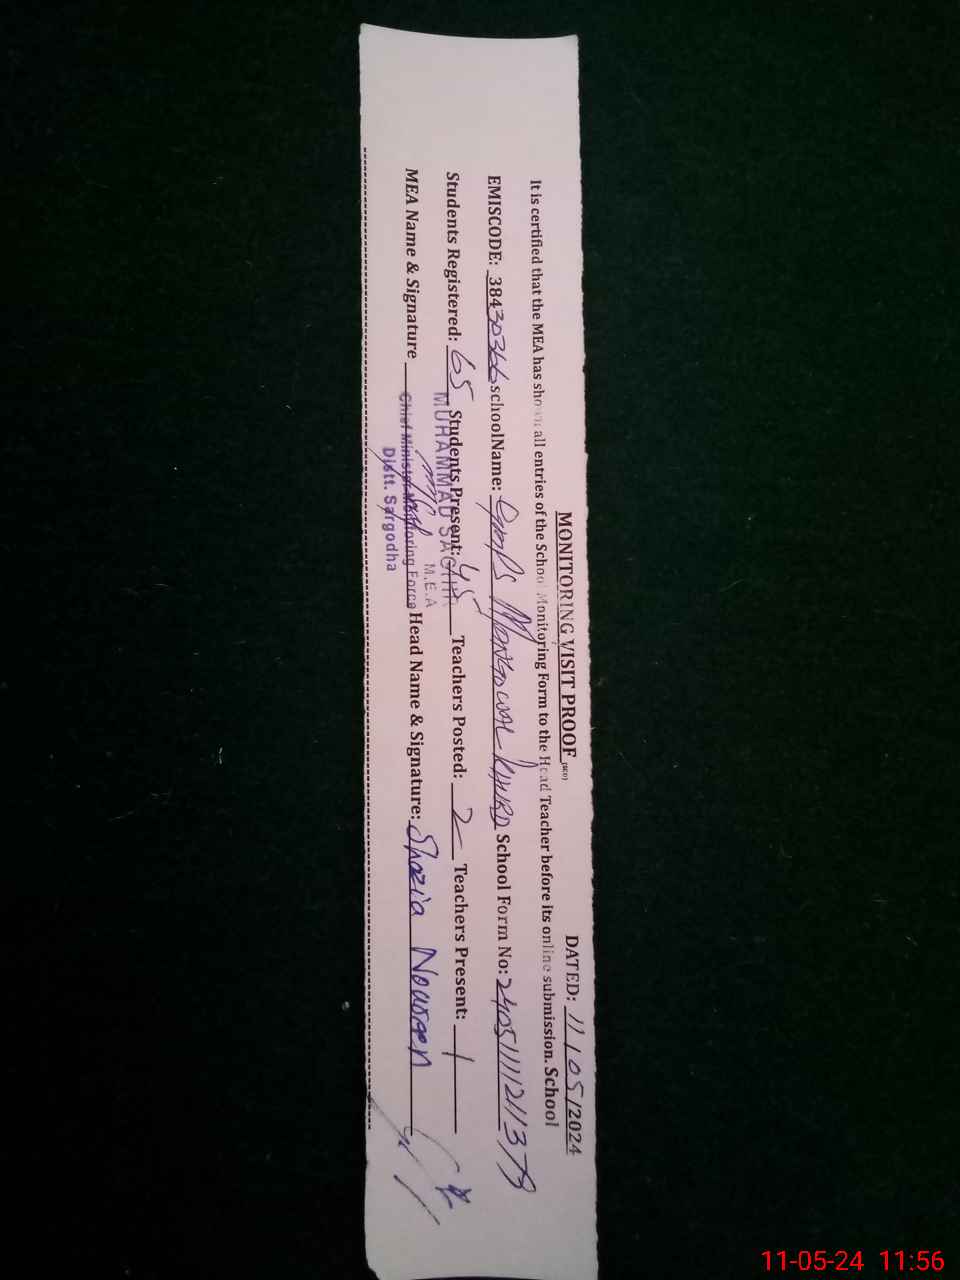 MONITORING VISIT PROOF (SED) DATED: 11/05/2024
It is certified that the MEA has shown all entries of the School Monitoring Form to the Head Teacher before its online submission. School
EMISCODE: 38430366 schoolName: GMPS Mangowal Khurd School Form No: 2405111121137
Students Registered: 65 Students Present: 45 Teachers Posted: 2 Teachers Present: 1
MUHAMMAD SAGHIR
M.E.A
MEA Name & Signature Head Name & Signature: Shazia Nowreen
Chief Minister Monitoring Force
Distt. Sargodha
11-05-24 11:56